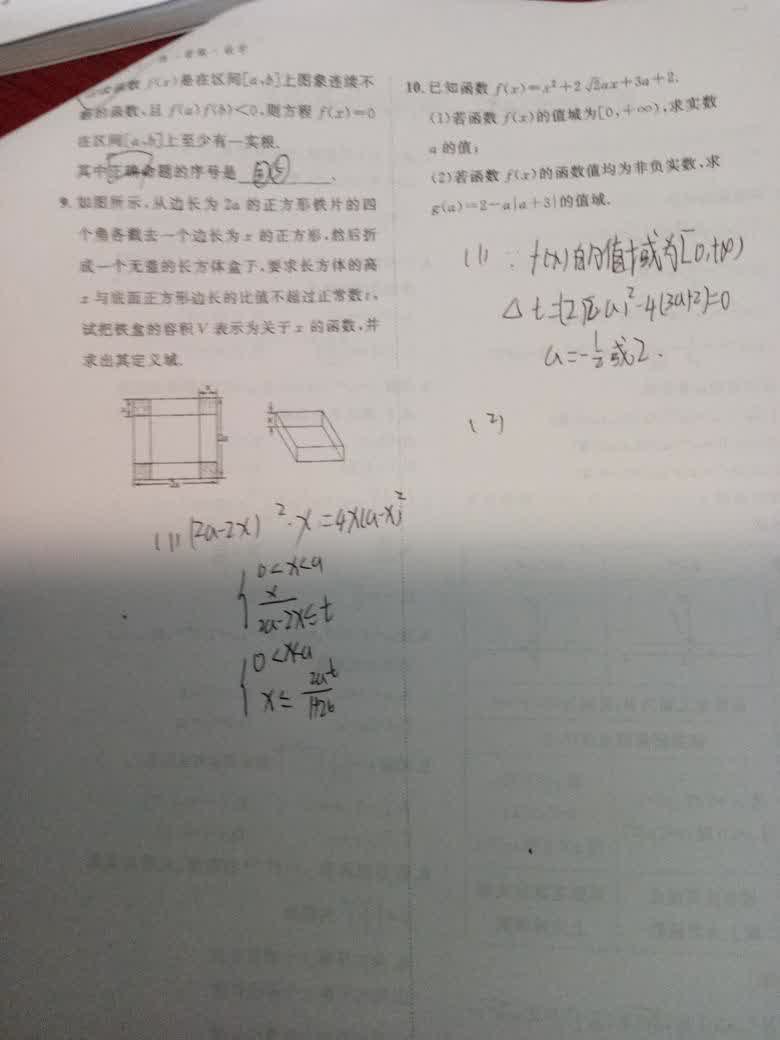 函数 f(x)是在区间[a,b]上图象连续不
断的函数,且 f(a)f(b)<0,则方程 f(x)=0
在区间[a,b]上至少有一实根.
其中正确命题的序号是
9. 如图所示,从边长为 2a 的正方形铁片的四
个角各截去一个边长为 x 的正方形,然后折
成一个无盖的长方体盒子,要求长方体的高
x 与底面正方形边长的比值不超过正常数 t,
试把铁盒的容积 V 表示为关于 x 的函数,并
求出其定义域.
x
x
2a
2a
x
(1) (2a-2x)²·x=4x(a-x)²
0<x<a
x/(2a-2x)≤t
0<x<a
x≤2at/(1+2t)
10. 已知函数 f(x)=x²+2√2ax+3a+2.
(1)若函数 f(x)的值域为[0,+∞),求实数
a 的值;
(2)若函数 f(x)的函数值均为非负实数,求
g(a)=2-a|a+3|的值域.
(1) ∵ f(x)的值域为[0,+∞)
a=-1/2或2.
(2)